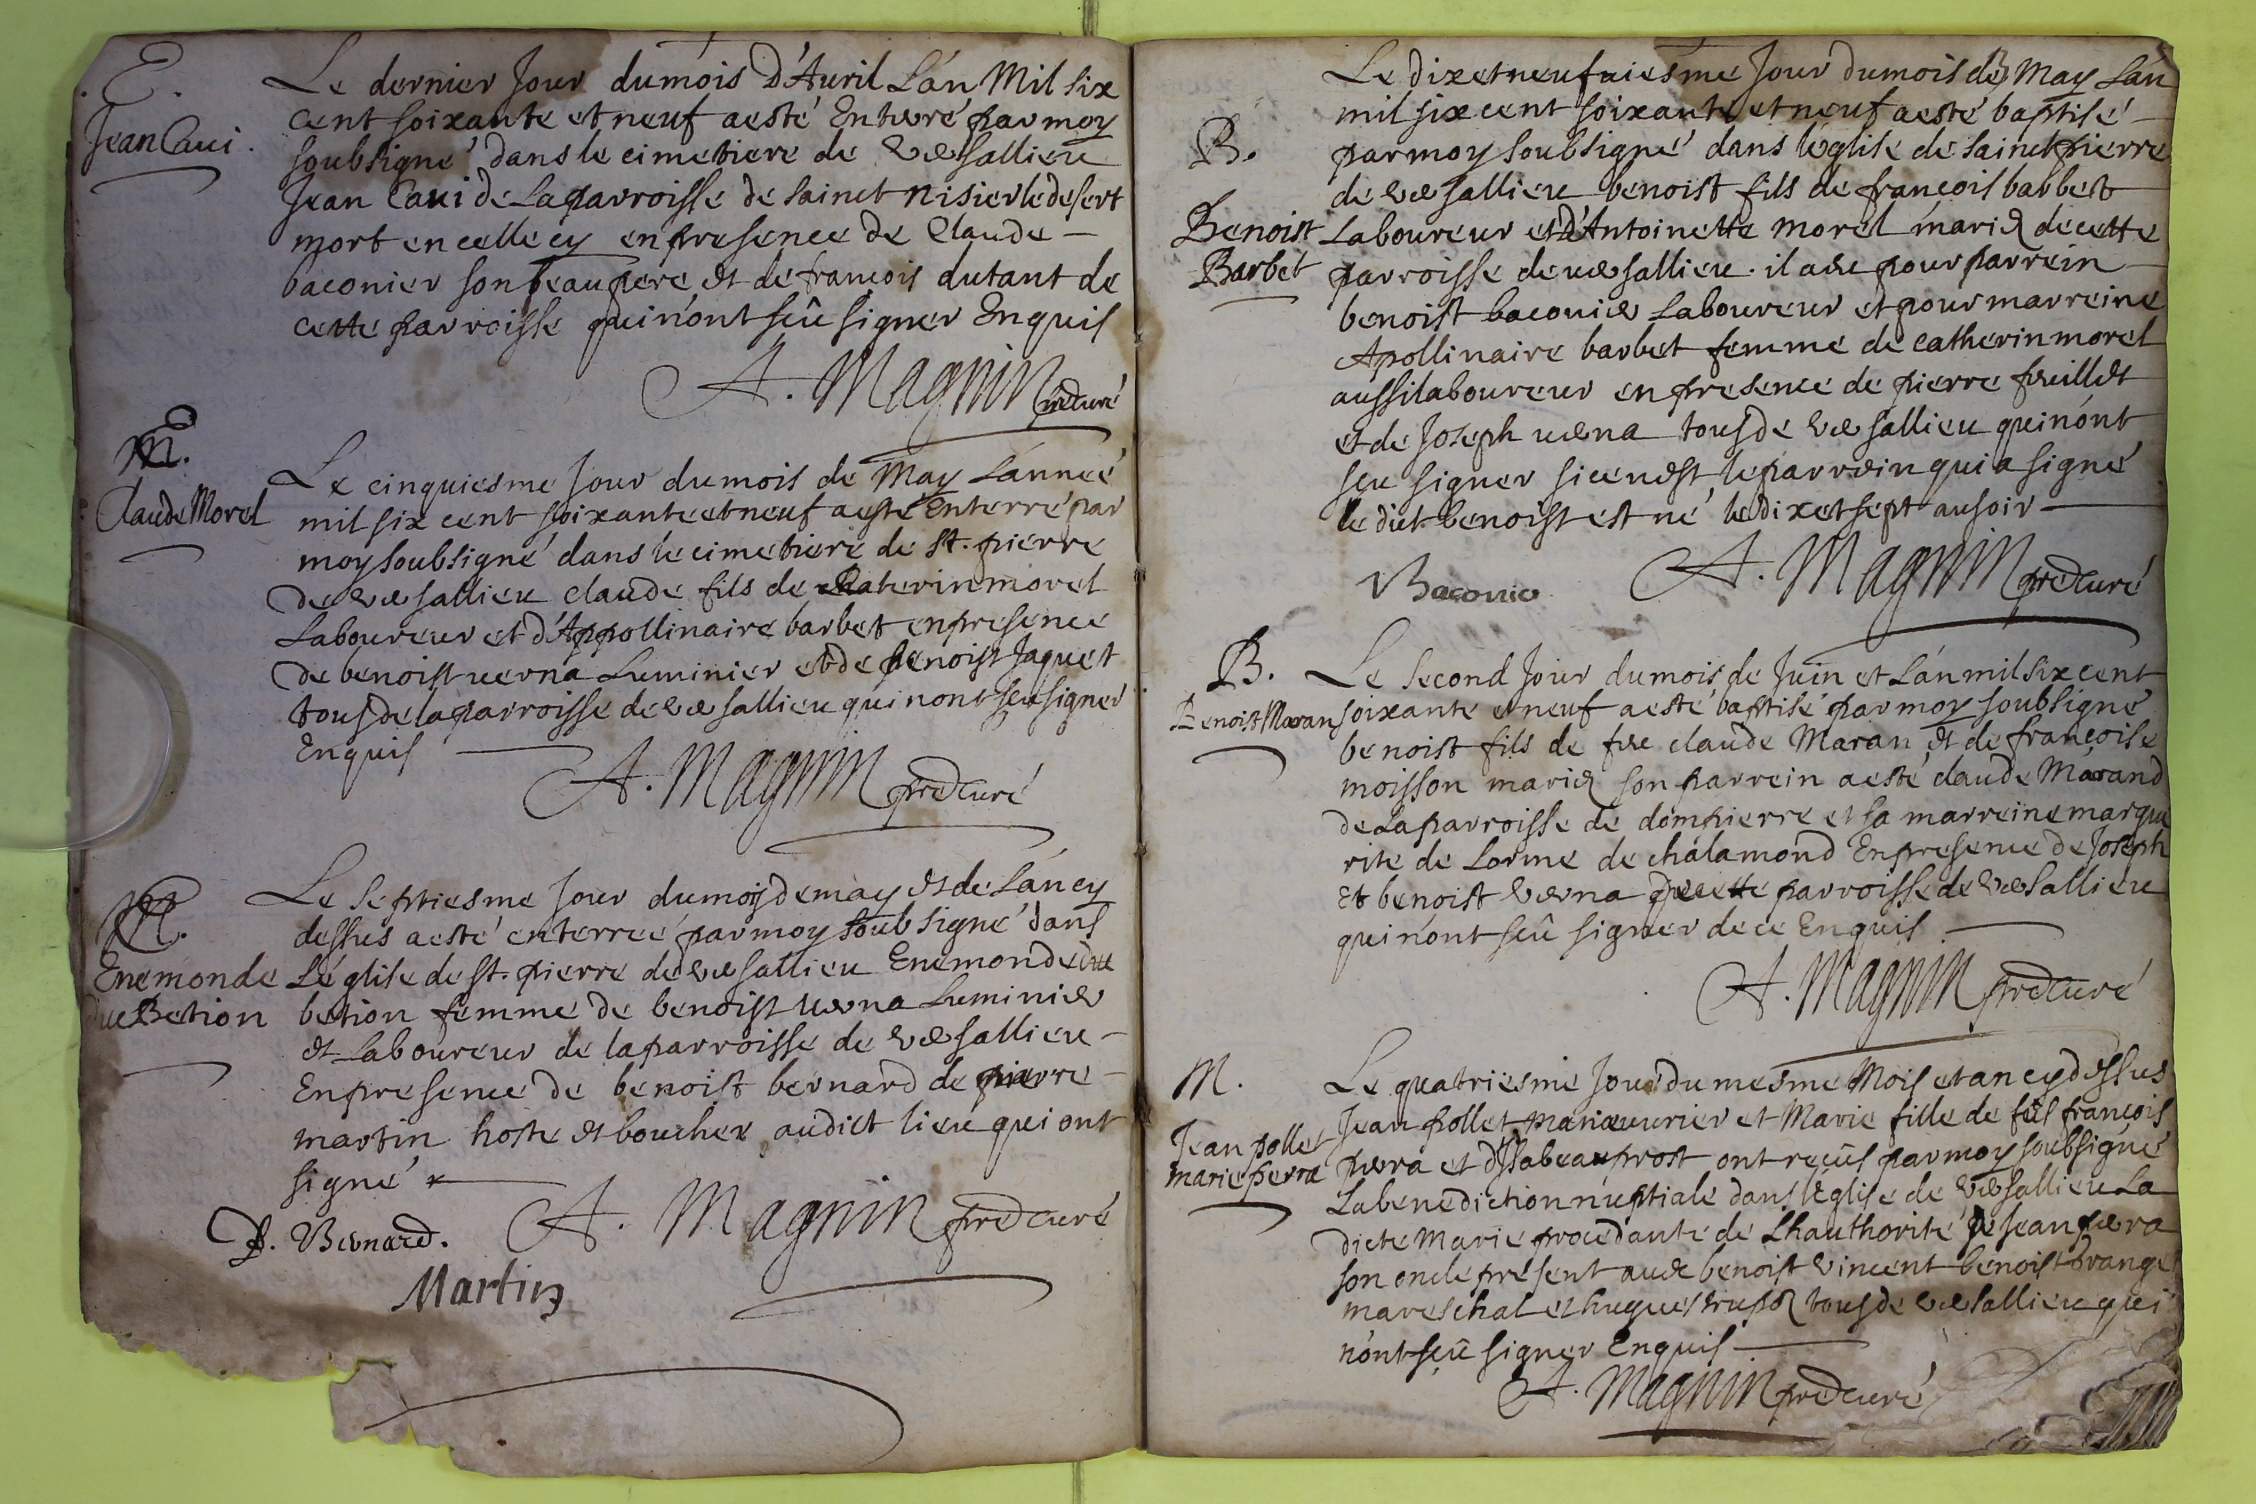 E.
Jean Caui.
Le dernier Jour du mois d'Auril L'an Mil six
cent soixante et neuf a esté Enterré par moy
soubsigné dans le cimetiere de versallieu
Jean Caui de La parroisse de sainct nisier le desert
mort en celle cy en presence de Claude
baconier son beaupere et de francois dutant de
cette parroisse qui n'ont sçû signer Enquis
A. Magnin p̄re curé
M.
Claude Morel
Le cinquiesme Jour du mois de May L'anneé
mil six cent soixante et neuf a esté Enterré par
moy soubsigné dans le cimetiere de St. pierre
de versallieu claude fils de Katerin morel
Laboureur et d'Appollinaire barbet en presence
de benoist uerna Luminier et de benoist Jaquet
tous de la parroisse de versallieu qui n'ont sçu signer
Enquis
A. Magnin p̄re curé
M.
Enemonde
due Betion
Le septiesme Jour du mois de may et de L'an cy
dessus a esté enterreé par moy soub signé dans
L'église de St. pierre de versallieu Enemonde due
betion femme de benoist uerna Luminier
et Laboureur de la parroisse de versallieu
En presence de benoist bernard de pierre
martin hoste et boucher audict lieu qui ont
signé
B. Bernard.
A. Magnin p̄re curé
Martin
B.
Benoist
Barbet
Le dixetneufuiesme Jour du mois de May L'an
mil six cent soixante et neuf a esté baptisé
par moy soubsigné dans l'église de sainct pierre
de versallieu benoist fils de francois barbet
Laboureur et d'Antoinette morel mariez de cette
parroisse de uersallieu. il a eu pour parrein
benoist baconier Laboureur et pour marreine
Apollinaire barbet femme de catherin morel
aussi laboureur en presence de pierre feuillet
et de Joseph uerna tous de versallieu qui n'ont
sçu signer si ce n'est le parrein qui a signé
le dict benoist est né le dix et sept au soir
Baconier
A. Magnin p̄re curé
B.
Benoist Maran
Le second Jour du mois de Juin et L'an mil six cent
soixante et neuf a esté baptisé par moy soubsigné
benoist fils de feu claude Maran et de francoise
moisson mariez son parrein a esté claude Marand
de La parroisse de dompierre et sa marreine margue
rite de Lorme de chalamond En presence de Joseph
et benoist verna de cette parroisse de versallieu
qui n'ont sçû signer de ce Enquis
A. Magnin p̄re curé
M.
Jean pollet
marie perra
Le quatriesme Jour du mesme Mois et an cy dessus
Jean pollet manœuurier et Marie fille de feu francois
perra et d'Isabeau prost ont reçûs par moy soubsigné
La benediction nuptiale dans l'Eglise de versallieu La
dicte Marie procedante de L'hauthorité de Jean perra
son oncle présent auec benoist vincent benoist Brange
mareschal et hugues trupoz tous de versallieu qui
n'ont sçû signer Enquis
A. Magnin p̄re curé